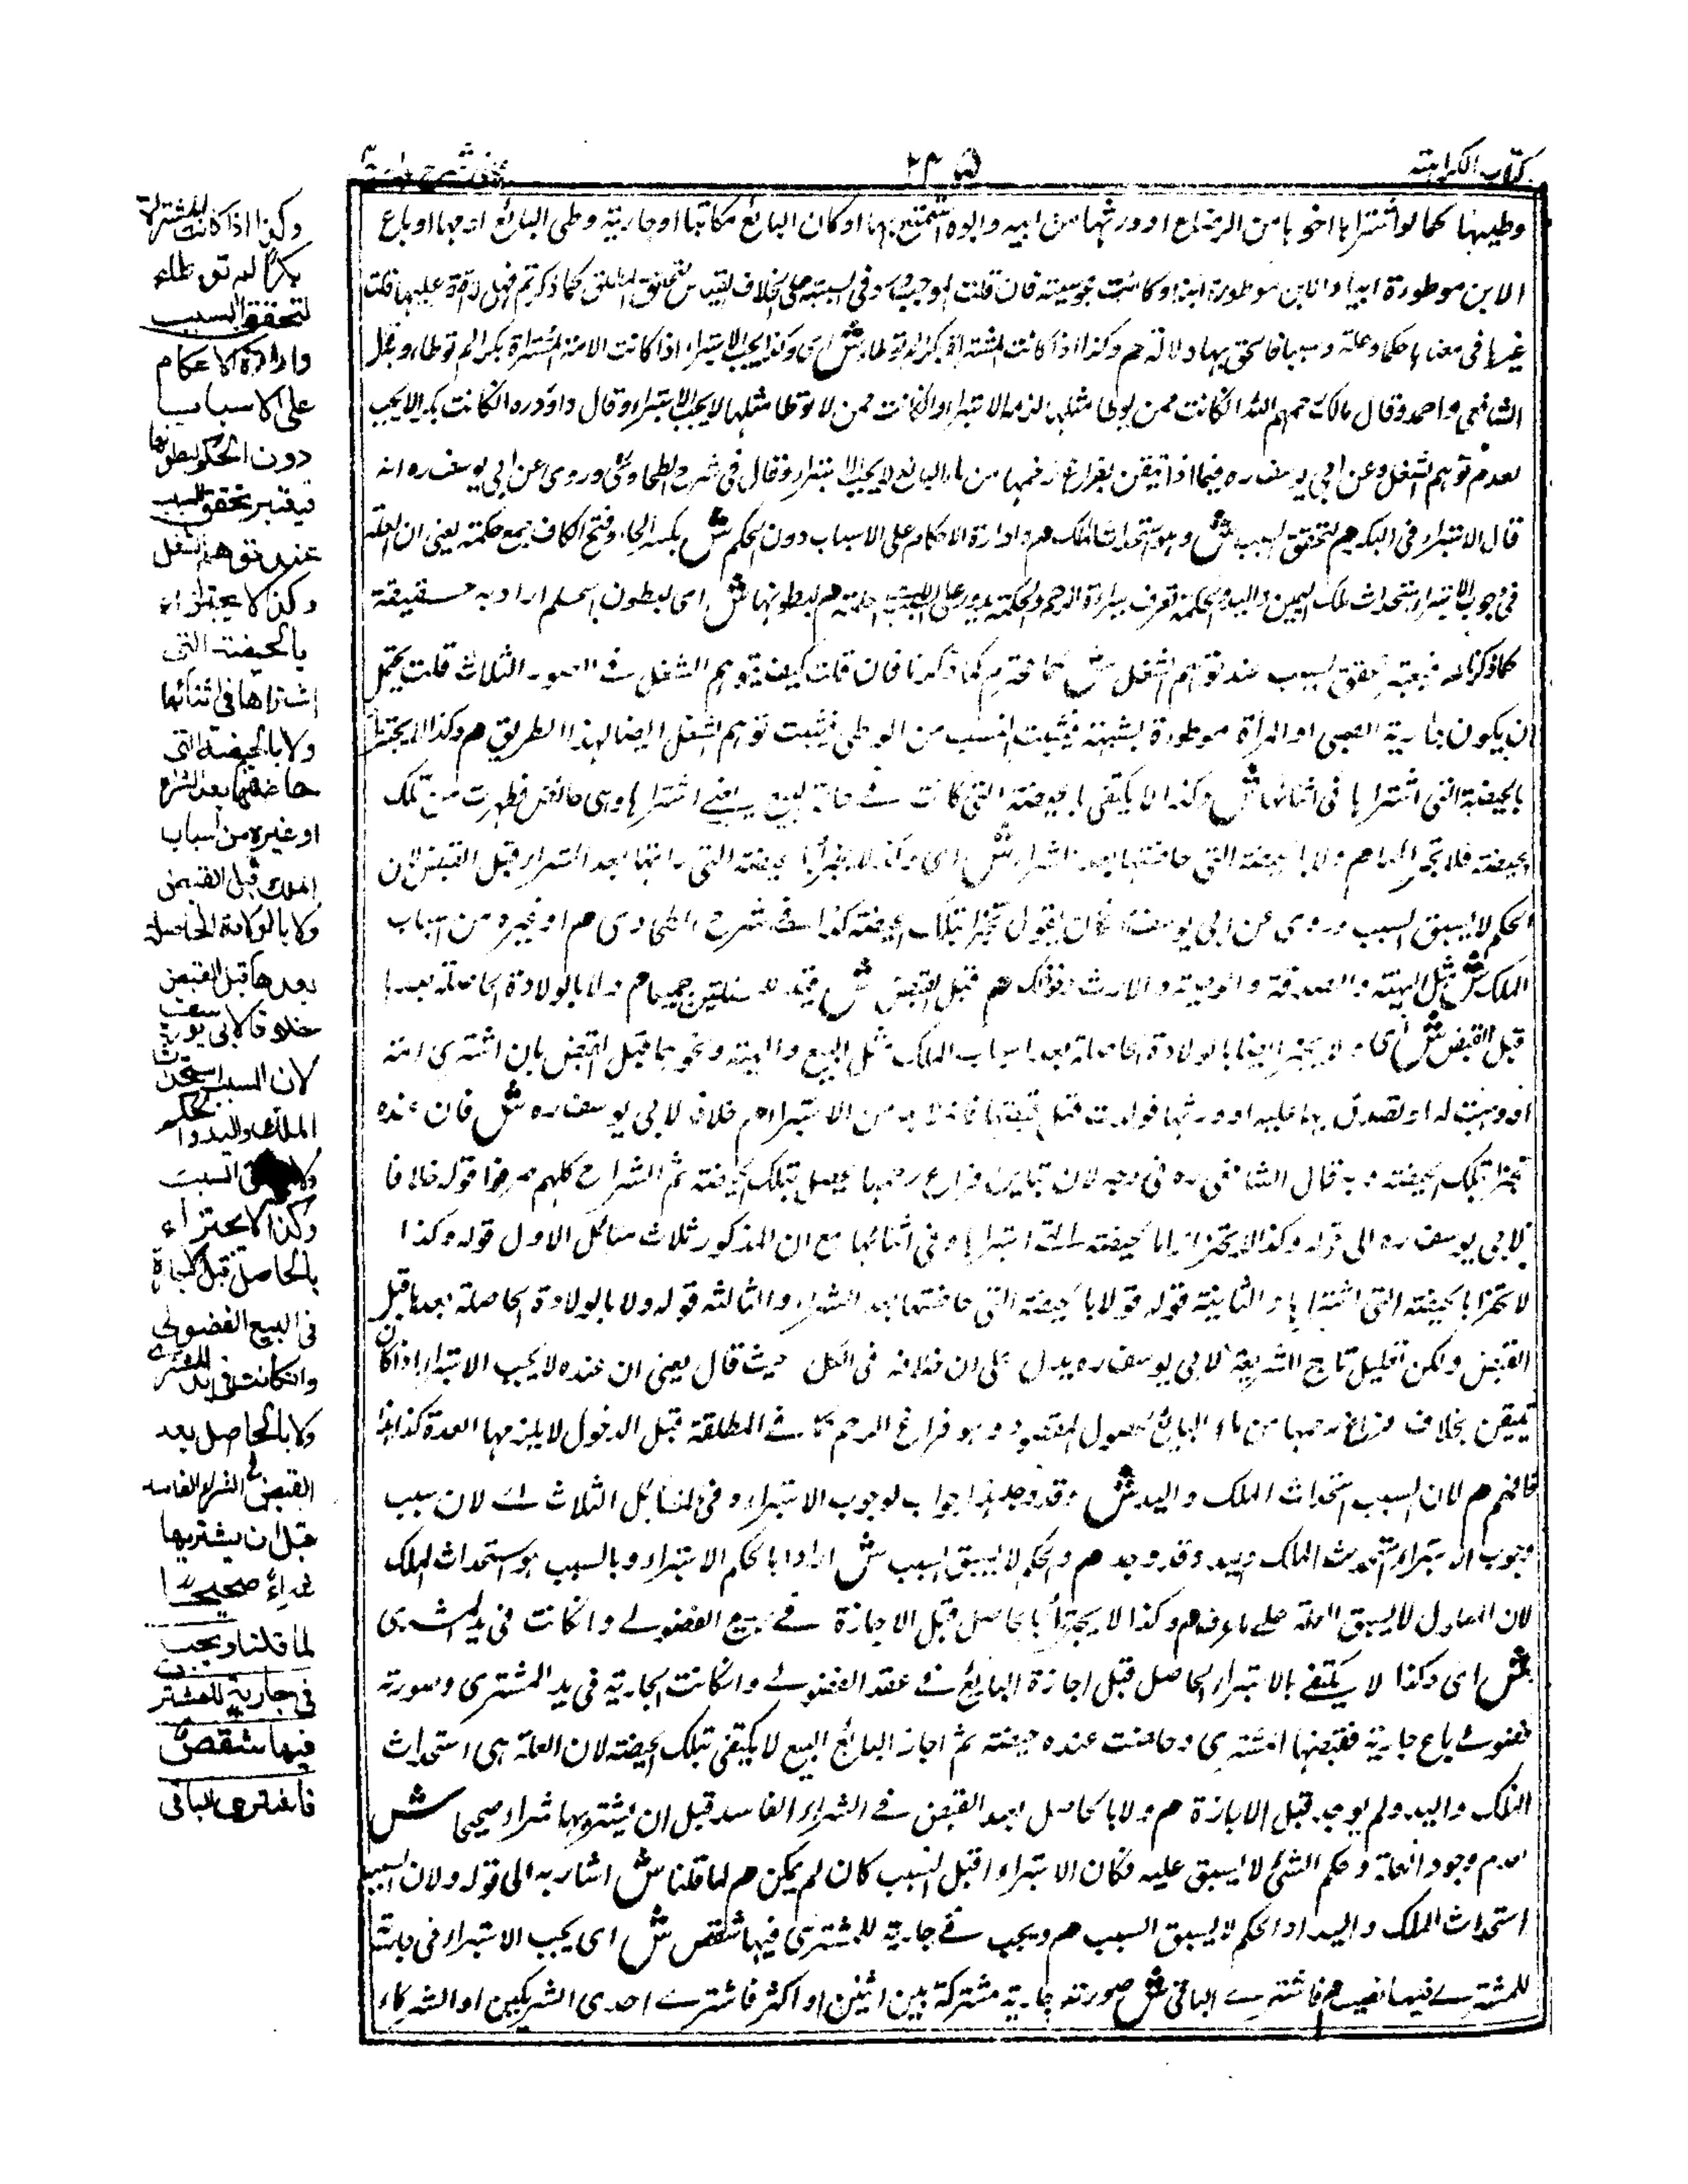 كتاب الكراهية
٢٣٥
عينى شرح هداية
وطيها كما لو اشتراها اخوها من الرضاع او ورثها من ابيه وابوه استمتع بها او كان البائع مكاتبا او جارية وطى البائع امها او باع
الابن موطوءة ابيه او الابن موطوءة ابنه او كانت مجوسية فان قلت الموجب ورد فى المسبية على خلاف القياس كما ذكرتم فهل قلت
غيرها فى معناها حكما وعلة وسببا فالحق بها دلالة م وكذا اذا كانت المشتراة بكرا لم توطا ش اى وكذا يجب الاستبراء اذا كانت الامة المشتراة بكرا لم توطاء وبه قال
الشافعى واحمد وقال مالك رحمهم الله ان كانت ممن يوطا مثلها لزمه الاستبراء وان كانت ممن لا توطا مثلها لا يجب الاستبراء وقال داود ره ان كانت بكرا لا يجب
لعدم توهم الشغل وعن ابى يوسف ره فيما اذا تيقن بفراغ رحمها من ماء البائع لا يجب الاستبراء وقال فى شرح الطحاوى وروى عن ابى يوسف ره انه
قال الاستبراء فى البكر م لتحقق السبب ش وهو استحداث الملك م وادارة الاحكام على الاسباب دون الحكم ش بكسر الحاء وفتح الكاف جمع حكمة يعنى ان العلة
فى وجوب الاستبراء استحداث ملك اليمين واليد والحكمة تعرف براءة الرحم والحكم يدور على السبب لا الحكمة م لبطونها ش اى لبطون الحكم اراد به حقيقة
كما ذكرنا م فيعتبر تحقق السبب عند توهم الشغل ش كما ذكرنا فان قلت كيف يتوهم الشغل فى الصور الثلاث قلت يحتمل
ان يكون جارية الصبى او المرأة موطوءة بشبهة فيثبت النسب من الوطى فيثبت توهم الشغل ايضا بهذا الطريق م وكذا لا يجتزأ
بالحيضة التى اشتراها فى اثنائها ش وكذا لا يكتفى بالحيضة التى كانت فى حالة البيع يعنى اشتراها وهى حائض فطهرت من تلك
الحيضة فلا تجزا م ولا بالحيضة التى حاضتها بعد الشراء ش اى وكذا لا يجتزأ بالحيضة التى راتها بعد الشراء قبل القبض لان
الحكم لا يسبق السبب وروى عن ابى يوسف كان يقول تجتزأ بتلك الحيضة كذا فى شرح الطحاوى م او غيره من اسباب
الملك ش مثل الهبة والصدقة والوصية والارث ونحو ذلك م قبل القبض ش قيد للمسئلتين جميعا م ولا بالولادة الحاصلة بعدها
قبل القبض ش اى ولا يجتزأ ايضا بالولادة الحاصلة بعد اسباب الملك مثل البيع والهبة ونحوهما قبل القبض بان اشترى امة
او وهبت له او تصدق بها عليه او ورثها فولدت قبل قبضها فانه لا بد من الاستبراء م خلافا لابى يوسف ره ش فان عنده
تجتزأ بتلك الحيضة وبه قال الشافعى ره فى وجه لان تباين فراغ رحمها يحصل بتلك الحيضة ثم الشراح كلهم صرفوا قوله خلافا
لابى يوسف ره الى قوله وكذا لا يجتزأ بالحيضة التى اشتراها فى اثنائها مع ان المذكور ثلاث مسائل الاول قوله وكذا
لا يجتزأ بالحيضة التى اشتراها والثانية قوله ولا بالحيضة التى حاضتها بعد الشراء والثالثة قوله ولا بالولادة الحاصلة بعدها قبل
القبض ولكن تعليل تاج الشريعة لابى يوسف ره يدل على ان خلافه فى الكل حيث قال يعنى ان عنده لا يجب الاستبراء اذا كان
تيقن فراغ رحمها من ماء البائع لحصول المقصود وهو فراغ الرحم كما فى المطلقة قبل الدخول لا يلزمها العدة كذا هذا
فافهم م لان السبب استحداث الملك واليد ش وقد وجد هذا جواب لوجوب الاستبراء وفى المسائل الثلاث اى لان سبب
وجوب الاستبراء استحداث الملك واليد وقد وجد م والحكم لا يسبق السبب ش اراد بالحكم الاستبراء وبالسبب هو استحداث الملك
لان المعلول لا يسبق العلة على ما عرف م وكذا لا يجتزأ بالحاصل قبل الاجازة فى بيع الفضولى وان كانت فى يد المشترى
ش اى وكذا لا يكتفى بالاستبراء الحاصل قبل اجازة البائع فى عقد الفضولى وان كانت الجارية فى يد المشترى وصورته
فضولى باع جارية فقبضها المشترى وحاضت عنده حيضة ثم اجاز البائع البيع لا يكتفى بتلك الحيضة لان العلة هى استحداث
الملك واليد ولم يوجد قبل الاجازة م ولا بالحاصل بعد القبض فى الشراء الفاسد قبل ان يشتريها شراء صحيحا ش
لعدم وجود العلة وحكم الشئ لا يسبق عليه فكان الاستبراء قبل السبب كان لم يكن م لما قلنا ش اشار به الى قوله ولان السبب
استحداث الملك واليد اذ الحكم لا يسبق السبب م ويجب فى جارية للمشترى فيها شقص ش اى يجب الاستبراء فى جارية
للمشترى فيها نصيب م فاشترى الباقى ش صورته جارية مشتركة بين اثنين او اكثر فاشترى احدى الشريكين او الشركاء
وكذا اذا كانت المشتراة
بكرا لم توطاء
لتحقق السبب
وادارة الاحكام
على الاسباب
دون الحكم لبطونها
فيعتبر تحقق السبب
عند توهم الشغل
وكذا لا يجتزاء
بالحيضة التى
اشتراها فى اثنائها
ولا بالحيضة التى
حاضتها بعد الشراء
او غيره من اسباب
الملك قبل القبض
ولا بالولادة الحاصلة
بعدها قبل القبض
خلافا لابى يوسف
لان السبب استحداث
الملك واليد والحكم
لا يسبق السبب
وكذا لا يجتزاء
بالحاصل قبل الاجازة
فى البيع الفضولى
وان كانت فى يد المشترى
ولا بالحاصل بعد
القبض فى الشراء الفاسد
قبل ان يشتريها
شراء صحيحا
لما قلنا ويجب
فى جارية للمشترى
فيها شقص
فاشترى الباقى